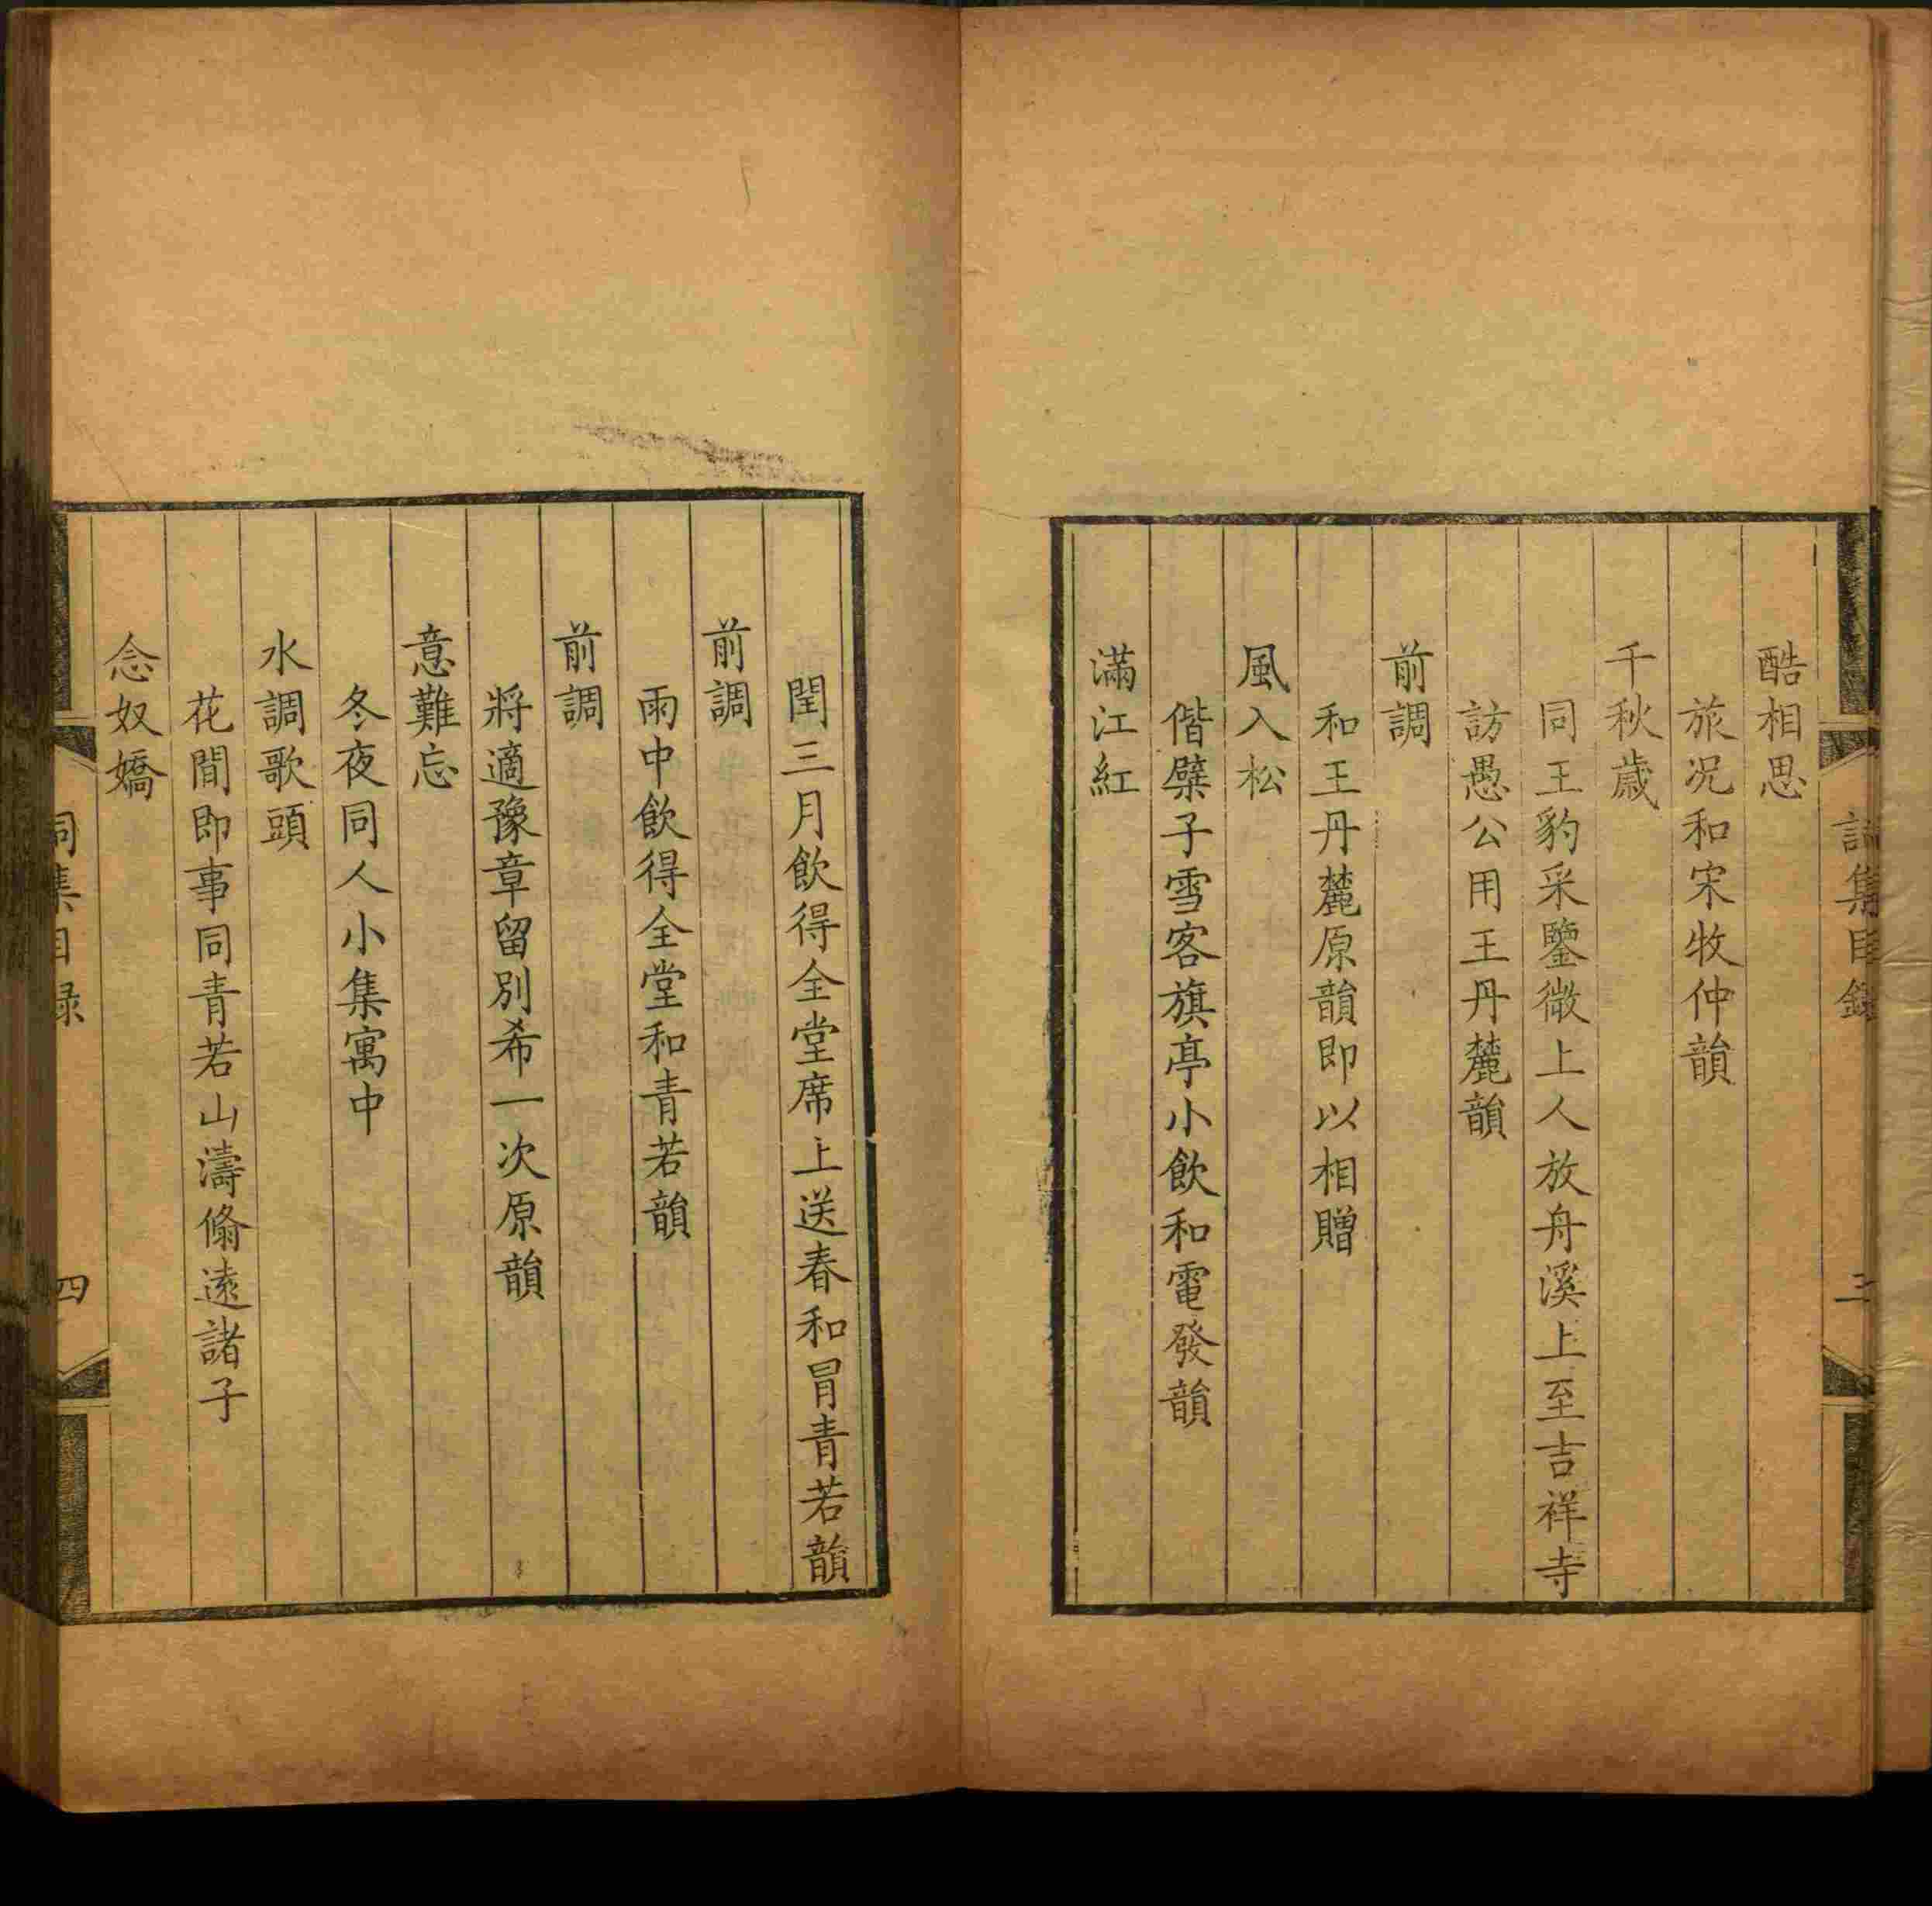 詞集目錄
三
酷相思
旅况和宋牧仲韻
千秋歲
同王豹采鑒微上人放舟溪上至吉祥寺
訪愚公用王丹麓韻
前調
和王丹麓原韻即以相贈
風入松
偕檗子雪客旗亭小飲和電發韻
滿江紅
閏三月飲得全堂席上送春和冐青若韻
前調
雨中飲得全堂和青若韻
前調
將適豫章留別希一次原韻
意難忘
冬夜同人小集寓中
水調歌頭
花間即事同青若山濤翛遠諸子
念奴嬌
詞集目録
四